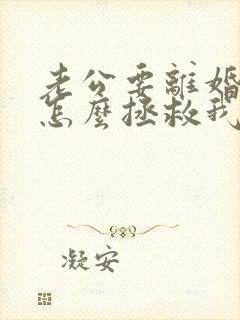 老公要離婚
怎麼拯救我
凝安